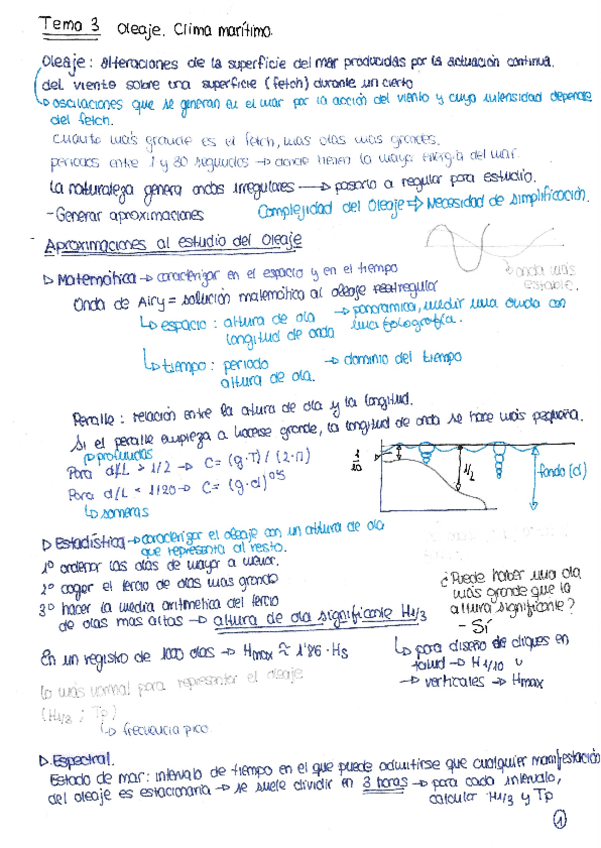 Tema 3 Oleaje. Clima marítimo.
Oleaje: alteraciones de la superficie del mar producidas por la actuación continua.
del viento sobre una superficie (fetch) durante un cierto
↳ oscilaciones que se generan en el mar por la acción del viento y cuya intensidad depende
del fetch.
cuanto más grande es el fetch, más olas más grandes.
periodos entre 1 y 30 segundos → donde tienen la mayor energía del mar.
la naturaleza genera ondas irregulares → pasarlo a regular para estudio.
- Generar aproximaciones
Complejidad del Oleaje ⇒ Necesidad de simplificación.
- Aproximaciones al estudio del Oleaje
↳ onda más
estable.
▷ Matemática → caracterizar en el espacio y en el tiempo
Onda de Airy = solución matemática al oleaje regular
↳ espacio: altura de ola
longitud de onda
→ panorámica, medir una onda con
una fotografía.
↳ tiempo: periodo
altura de ola.
→ dominio del tiempo
Peralte: relación entre la altura de ola y la longitud.
Si el peralte empieza a hacerse grande, la longitud de onda se hace más pequeña.
↱ profundas
Para d/L > 1/2 → C = (g·T) / (2·π)
Para d/L < 1/20 → C = (g·d)^0'5
↳ someras
1/20
1/2
fondo (d)
▷ Estadística → caracterizar el oleaje con un altura de ola
que representa al resto.
1º ordenar las olas de mayor a menor.
2º coger el tercio de olas más grande
3º hacer la media aritmética del tercio
de olas más altas → altura de ola significante H1/3
¿Puede haber una ola
más grande que la
altura significante?
- Sí
↳ para diseño de diques en
talud → H1/10
→ verticales → Hmax
En un registro de 1000 olas → Hmax ≈ 1'86 · Hs
lo más normal para representar el oleaje
(H1/3 ; Tp)
↳ frecuencia pico.
▷ Espectral.
Estado de mar: intervalo de tiempo en el que puede admitirse que cualquier manifestación
del oleaje es estacionaria → se suele dividir en 3 horas → para cada intervalo,
calcular H1/3 y Tp
1